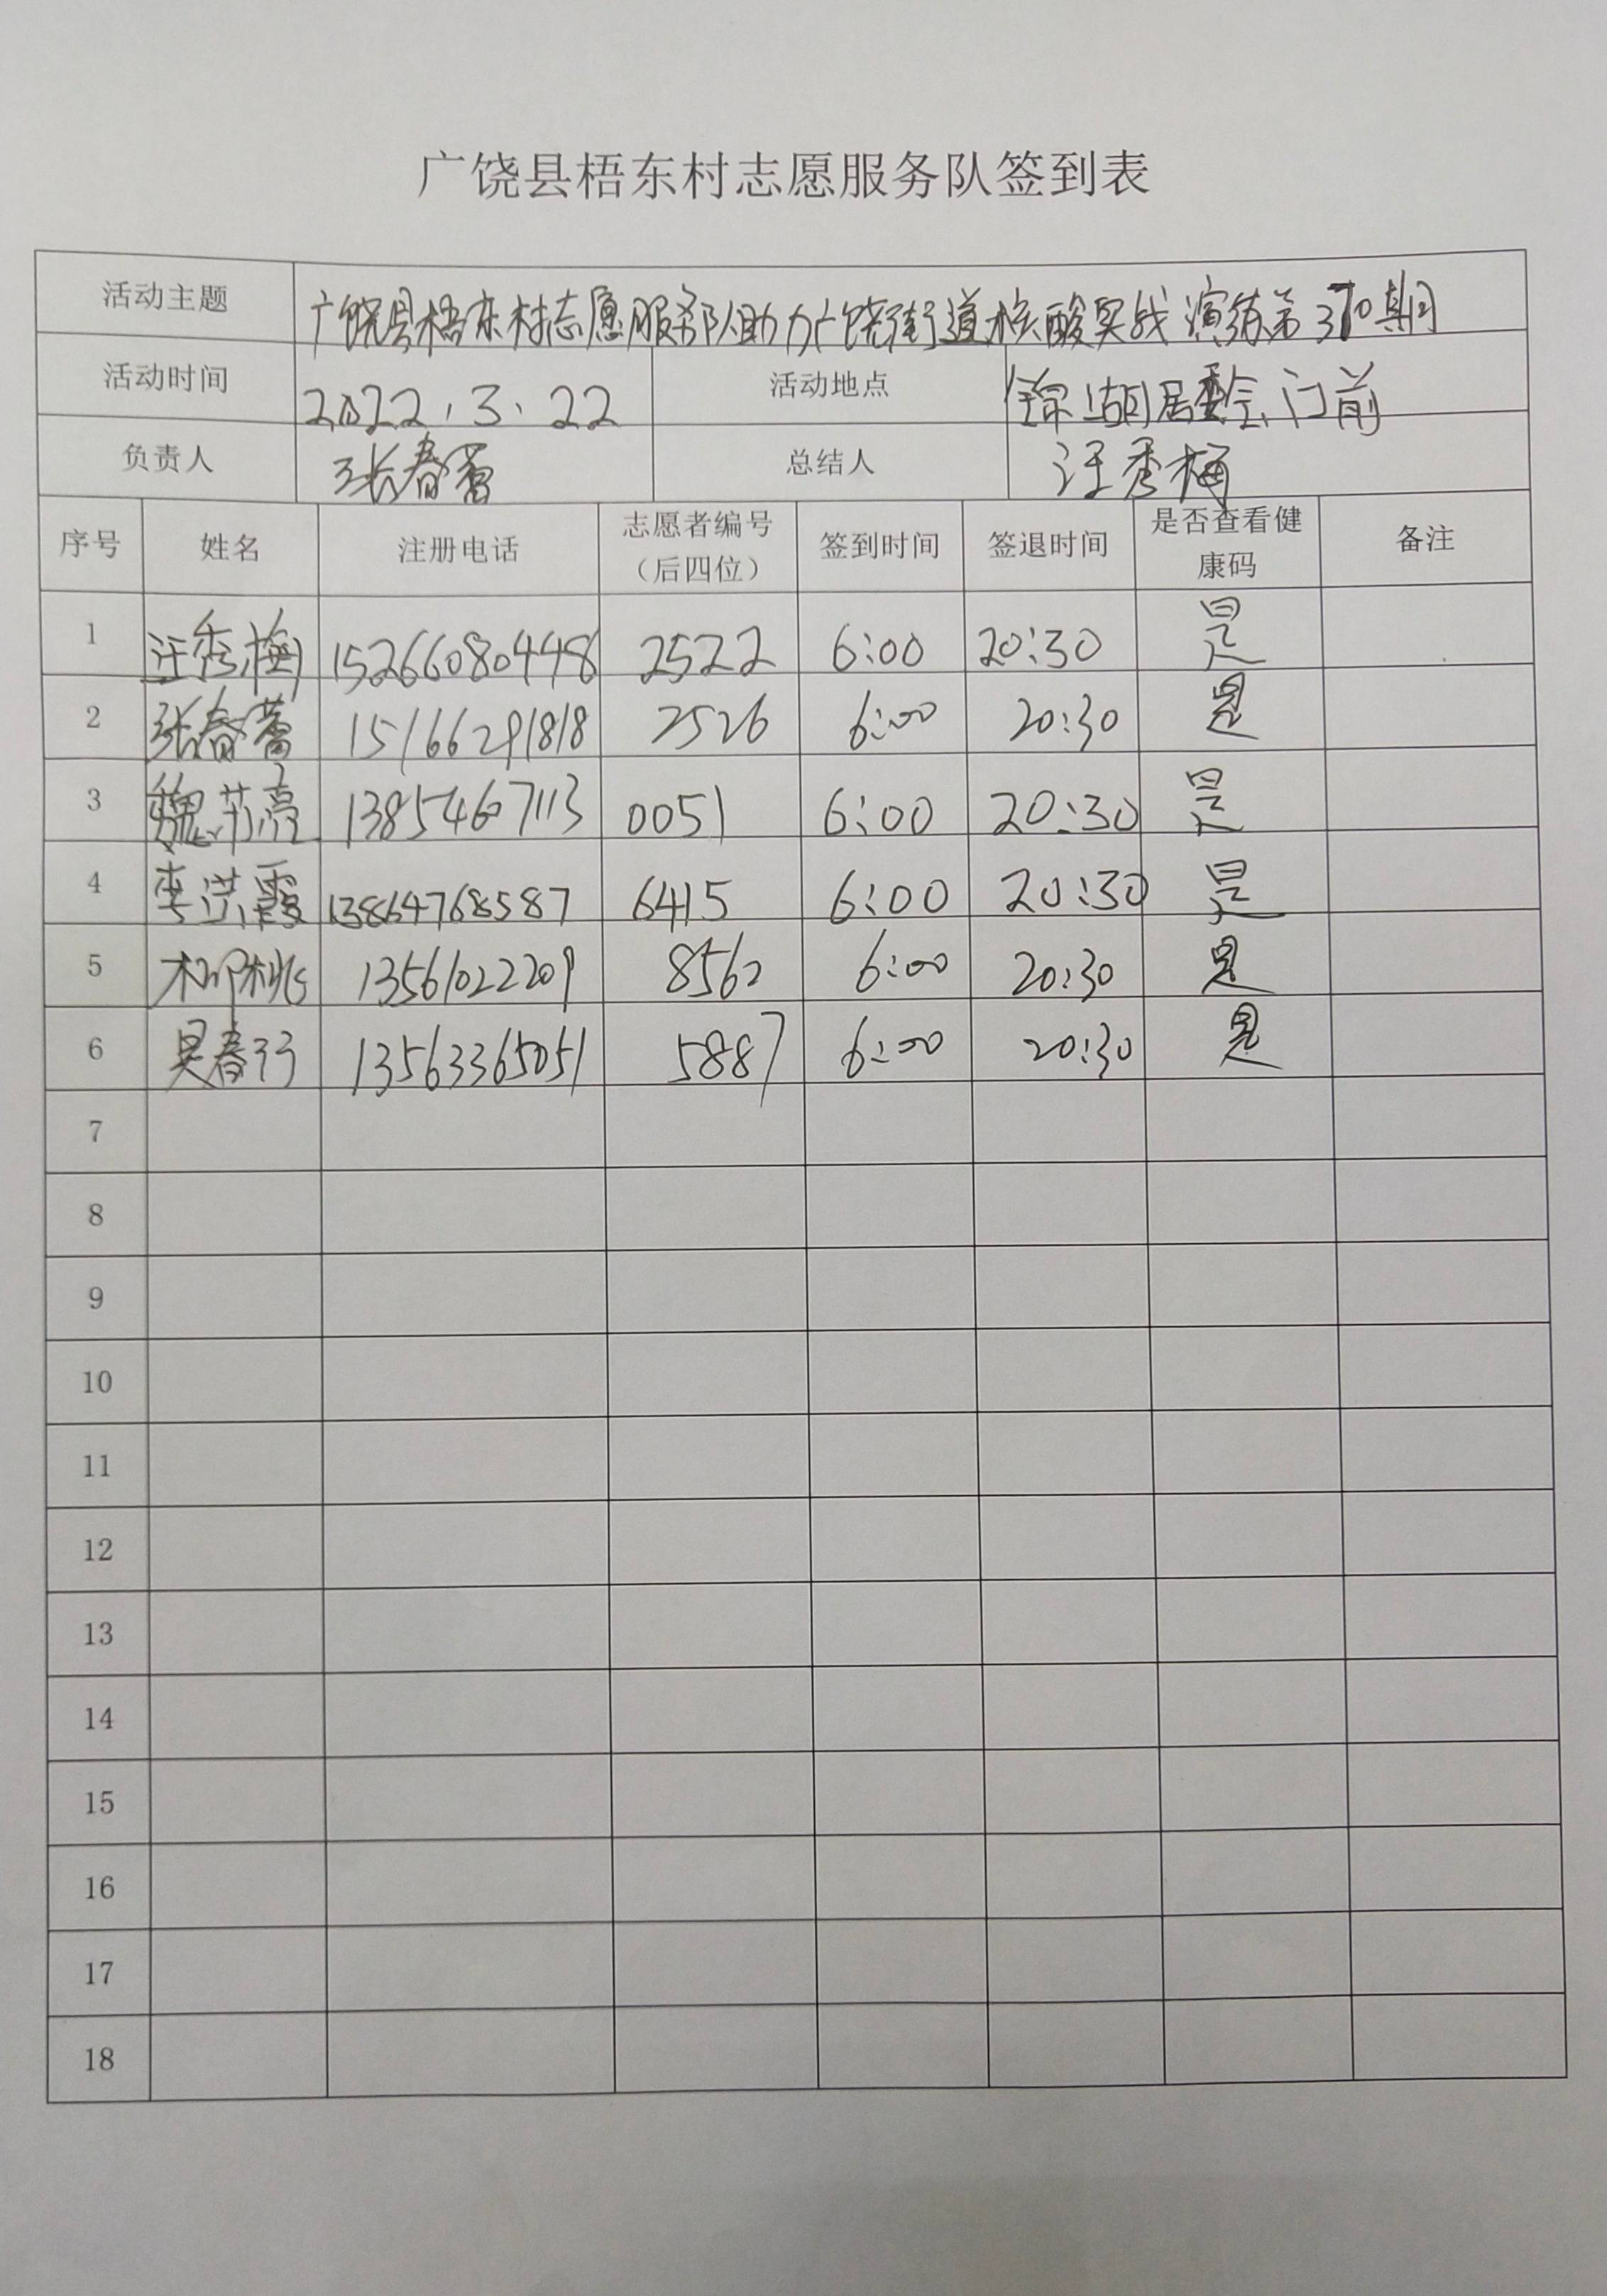 广饶县梧东村志愿服务队签到表
活动主题 广饶县梧东村志愿服务队助力广饶街道核酸实战演练第370期
活动时间 2022.3.22 活动地点 锦湖居委会门前
负责人 张春蕾 总结人 汪秀梅
序号 姓名 注册电话 志愿者编号（后四位） 签到时间 签退时间 是否查看健康码 备注
1 汪秀梅 15266080448 2522 6:00 20:30 是
2 张春蕾 15166291818 2526 6:00 20:30 是
3 魏芹亮 13854667113 0051 6:00 20:30 是
4 李洪霞 13864768587 6415 6:00 20:30 是
5 柳桃 13561022209 8562 6:00 20:30 是
6 吴春行 13563365051 5887 6:00 20:30 是
7
8
9
10
11
12
13
14
15
16
17
18